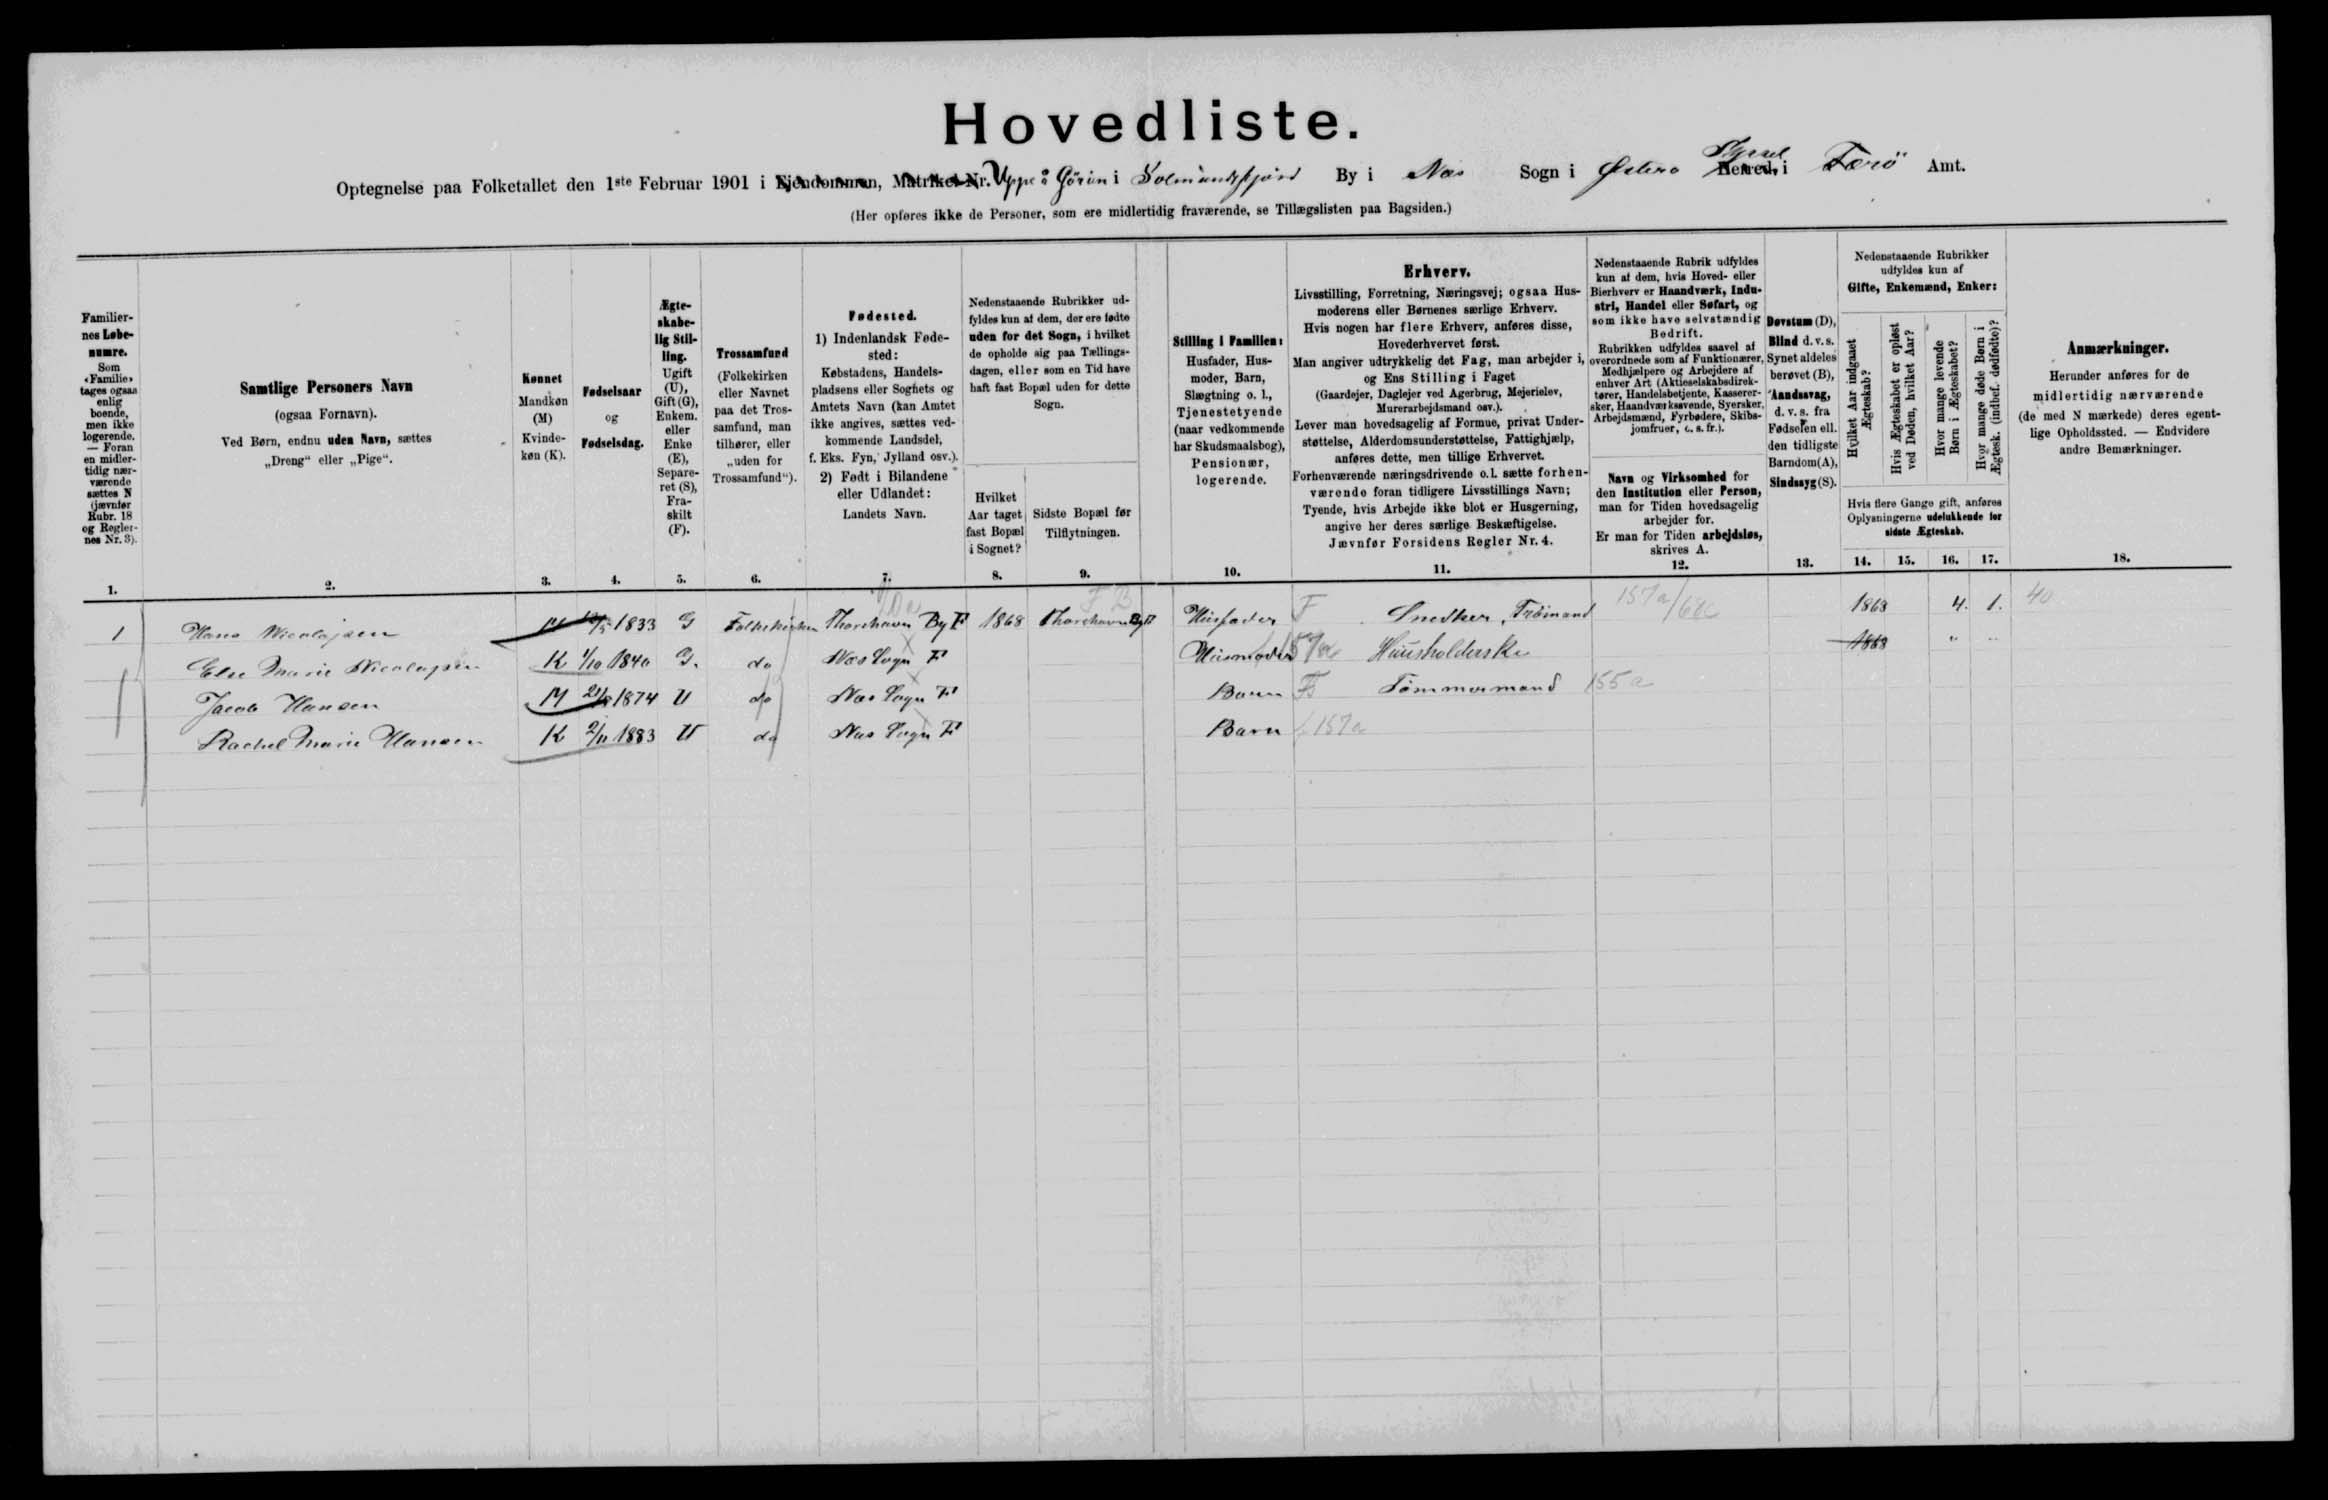 Hovedliste.
Optegnelse paa Folketallet den 1ste Februar 1901 i Ejendommen, Matrikel-Nr. Uppe å Gørin i Solmundefjord By i Næs Sogn i Østerø Herred, Syssel i Færö Amt.
(Her opføres ikke de Personer, som ere midlertidig fraværende, se Tillægslisten paa Bagsiden.)
Familier-
nes Løbe-
numre.
Som
«Familie»
tages ogsaa
enlig
boende,
men ikke
logerende.
— Foran
en midler-
tidig nær-
værende
sættes N
(jævnfør
Rubr. 18
og Regler-
nes Nr. 3).
1.
Samtlige Personers Navn
(ogsaa Fornavn).
Ved Børn, endnu uden Navn, sættes
„Dreng“ eller „Pige“.
2.
Kønnet
Mandkøn
(M)
Kvinde-
køn (K).
3.
Fødselsaar
og
Fødselsdag.
4.
Ægte-
skabe-
lig Stil-
ling.
Ugift
(U),
Gift (G),
Enkem.
eller
Enke
(E),
Separe-
ret (S),
Fra-
skilt
(F).
5.
Trossamfund
(Folkekirken
eller Navnet
paa det Tros-
samfund, man
tilhører, eller
„uden for
Trossamfund“).
6.
Fødested.
1) Indenlandsk Føde-
sted:
Købstadens, Handels-
pladsens eller Sognets og
Amtets Navn (kan Amtet
ikke angives, sættes ved-
kommende Landsdel,
f. Eks. Fyn, Jylland osv.).
2) Født i Bilandene
eller Udlandet:
Landets Navn.
7.
Nedenstaaende Rubrikker ud-
fyldes kun af dem, der ere fødte
uden for det Sogn, i hvilket
de opholde sig paa Tællings-
dagen, eller som en Tid have
haft fast Bopæl uden for dette
Sogn.
Hvilket
Aar taget
fast Bopæl
i Sognet?
8.
Sidste Bopæl før
Tilflytningen.
9.
Stilling i Familien:
Husfader, Hus-
moder, Barn,
Slægtning o. l.,
Tjenestetyende
(naar vedkommende
har Skudsmaalsbog),
Pensionær,
logerende.
10.
Erhverv.
Livsstilling, Forretning, Næringsvej; ogsaa Hus-
moderens eller Børnenes særlige Erhverv.
Hvis nogen har flere Erhverv, anføres disse,
Hovederhvervet først.
Man angiver udtrykkelig det Fag, man arbejder i,
og Ens Stilling i Faget
(Gaardejer, Daglejer ved Agerbrug, Mejerielev,
Murerarbejdsmand osv.).
Lever man hovedsagelig af Formue, privat Under-
støttelse, Alderdomsunderstøttelse, Fattighjælp,
anføres dette, men tillige Erhvervet.
Forhenværende næringsdrivende o. l. sætte forhen-
værende foran tidligere Livsstillings Navn;
Tyende, hvis Arbejde ikke blot er Husgerning,
angive her deres særlige Beskæftigelse.
Jævnfør Forsidens Regler Nr. 4.
11.
Nedenstaaende Rubrik udfyldes
kun af dem, hvis Hoved- eller
Bierhverv er Haandværk, Indu-
stri, Handel eller Søfart, og
som ikke have selvstændig
Bedrift.
Rubrikken udfyldes saavel af
overordnede som af Funktionærer,
Medhjælpere og Arbejdere af
enhver Art (Aktieselskabsdirek-
tører, Handelsbetjente, Kasserer-
sker, Haandværkssvende, Syersker,
Arbejdsmænd, Fyrbødere, Skibs-
jomfruer, o. s. fr.).
Navn og Virksomhed for
den Institution eller Person,
man for Tiden hovedsagelig
arbejder for.
Er man for Tiden arbejdsløs,
skrives A.
12.
Døvstum (D),
Blind d. v. s.
Synet aldeles
berøvet (B),
Aandssvag,
d. v. s. fra
Fødselen ell.
den tidligste
Barndom (A),
Sindssyg (S).
13.
Nedenstaaende Rubrikker
udfyldes kun af
Gifte, Enkemænd, Enker:
Hvilket Aar indgaaet
Ægteskab?
Hvis Ægteskabet er opløst
ved Døden, hvilket Aar?
Hvor mange levende
Børn i Ægteskabet?
Hvor mange døde Børn i
Ægtesk. (indbef. dødfødte)?
Hvis flere Gange gift, anføres
Oplysningerne udelukkende for
sidste Ægteskab.
14. 15. 16. 17.
Anmærkninger.
Herunder anføres for de
midlertidig nærværende
(de med N mærkede) deres egent-
lige Opholdssted. — Endvidere
andre Bemærkninger.
18.
1 Hans Nicolajsen M 1833 G Folkekirken Thorshavn By F 1868 Thorshavn By F Husfader F Snedker, Tröimand 157a/68c 1868 4. 1. 40
Else Marie Nicolajsen K 1/10 1840 G. do Næs Sogn F Husmoder 157a Huusholderske 1868 " "
Jacob Hansen M 21/8 1874 U do Næs Sogn F Barn FB Tømmermand 155a
Rachel Marie Hansen K 2/11 1883 U do Næs Sogn F Barn f 157a